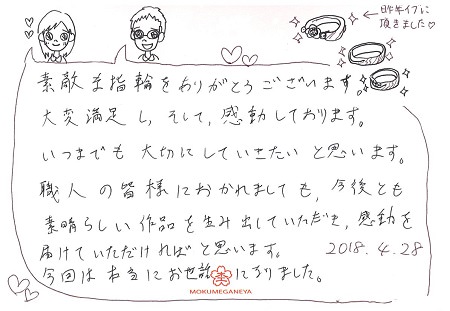 昨年イブに
頂きました♡
素敵な指輪をありがとうございます。
大変満足し、そして、感動しております。
いつまでも大切にしていきたいと思います。
職人の皆様におかれましても、今後とも
素晴らしい作品を生み出していただき、感動を
届けていただければと思います。 2018.4.28
今回は本当にお世話になりました。
MOKUMEGANEYA